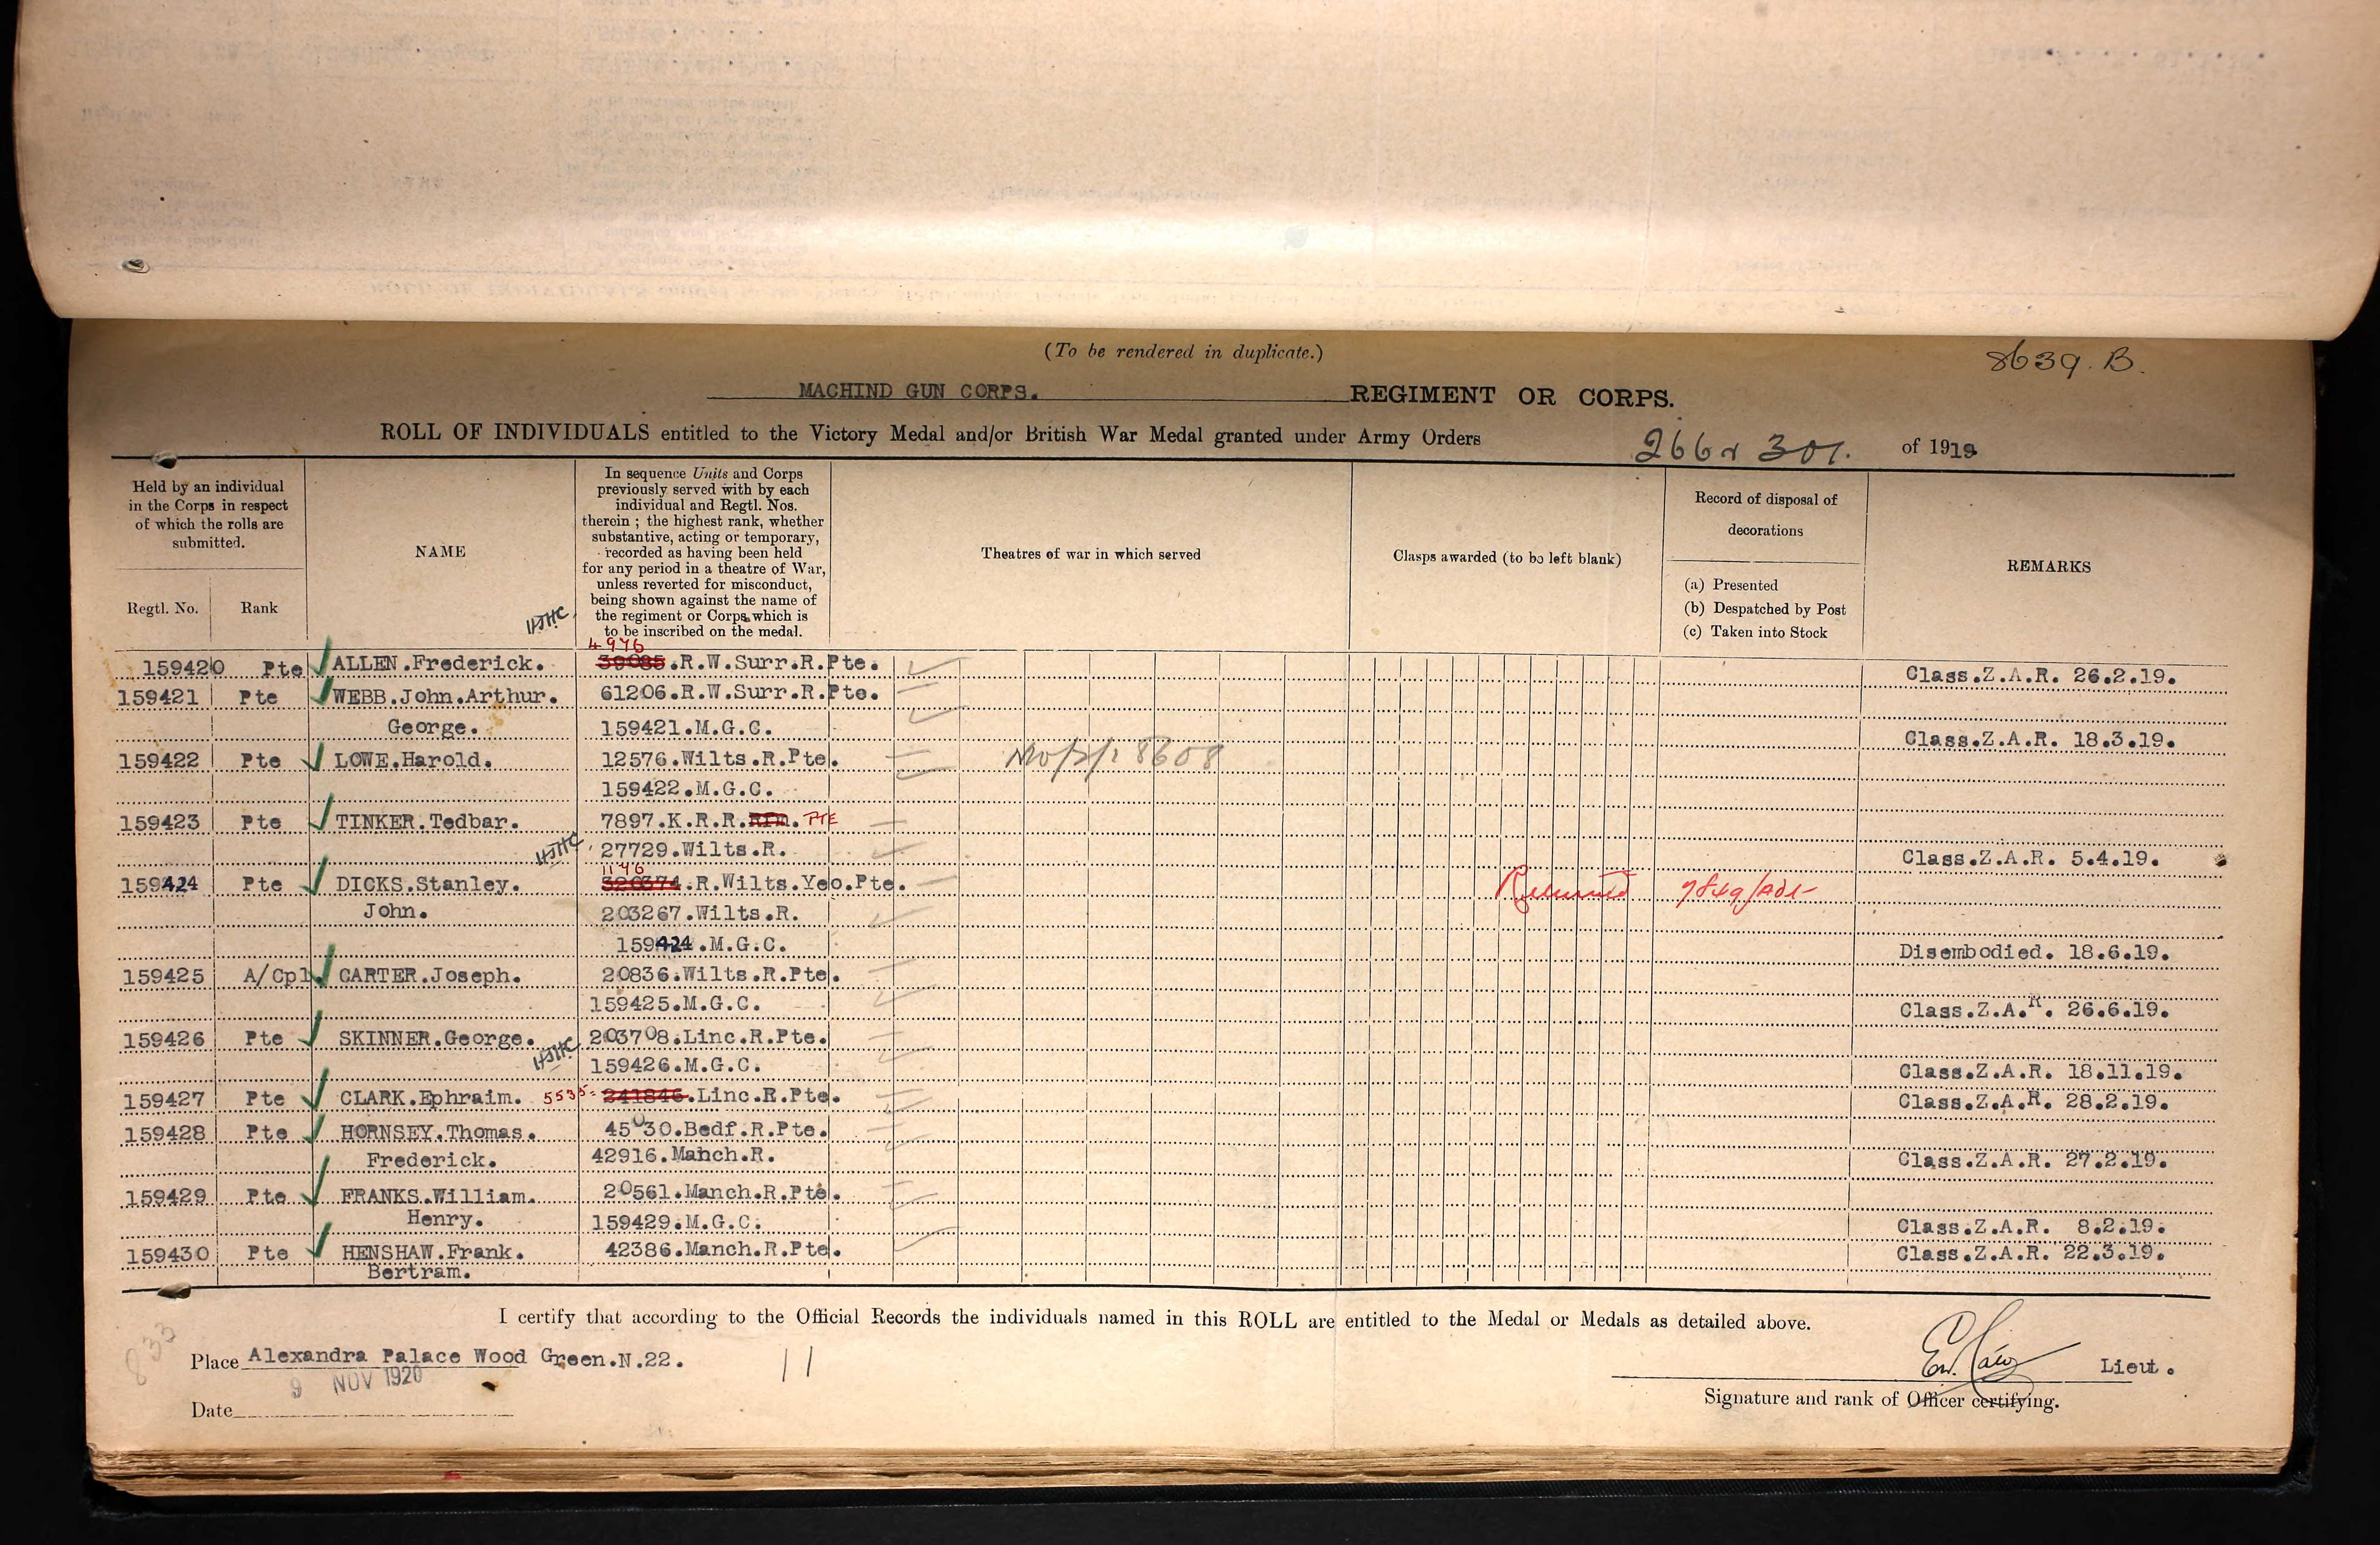 (To be rendered in duplicate.)
8639.B.
MACHIND GUN CORPS. REGIMENT OR CORPS.
ROLL OF INDIVIDUALS entitled to the Victory Medal and/or British War Medal granted under Army Orders 266 & 301. of 1919
Held by an individual in the Corps in respect of which the rolls are submitted.
Regtl. No. Rank
NAME
In sequence Units and Corps previously served with by each individual and Regtl. Nos. therein ; the highest rank, whether substantive, acting or temporary, recorded as having been held for any period in a theatre of War, unless reverted for misconduct, being shown against the name of the regiment or Corps which is to be inscribed on the medal.
Theatres of war in which served
Clasps awarded (to be left blank)
Record of disposal of decorations
(a) Presented
(b) Despatched by Post
(c) Taken into Stock
REMARKS
HJHC
4976
159420 Pte ALLEN.Frederick. 39085.R.W.Surr.R.Pte. Class.Z.A.R. 26.2.19.
159421 Pte WEBB.John.Arthur. 61206.R.W.Surr.R.Pte.
George. 159421.M.G.C. Class.Z.A.R. 18.3.19.
159422 Pte LOWE.Harold. 12576.Wilts.R.Pte. 8608
159422.M.G.C.
159423 Pte TINKER.Tedbar. 7897.K.R.R.Rfn. PTE
HJHC 27729.Wilts.R. Class.Z.A.R. 5.4.19.
1146
159424 Pte DICKS.Stanley. 320374.R.Wilts.Yeo.Pte. Returned
John. 203267.Wilts.R.
159424.M.G.C. Disembodied. 18.6.19.
159425 A/Cpl CARTER.Joseph. 20836.Wilts.R.Pte.
159425.M.G.C. Class.Z.A.R. 26.6.19.
159426 Pte SKINNER.George. 203708.Linc.R.Pte.
HJHC 159426.M.G.C. Class.Z.A.R. 18.11.19.
159427 Pte CLARK.Ephraim. 5535 241846.Linc.R.Pte. Class.Z.A.R. 28.2.19.
159428 Pte HORNSEY.Thomas. 45030.Bedf.R.Pte.
Frederick. 42916.Manch.R. Class.Z.A.R. 27.2.19.
159429 Pte FRANKS.William. 20561.Manch.R.Pte.
Henry. 159429.M.G.C. Class.Z.A.R. 8.2.19.
159430 Pte HENSHAW.Frank. 42386.Manch.R.Pte. Class.Z.A.R. 22.3.19.
Bertram.
I certify that according to the Official Records the individuals named in this ROLL are entitled to the Medal or Medals as detailed above.
833
Place Alexandra Palace Wood Green.N.22. 11
Lieut.
9 NOV 1920
Signature and rank of Officer certifying.
Date